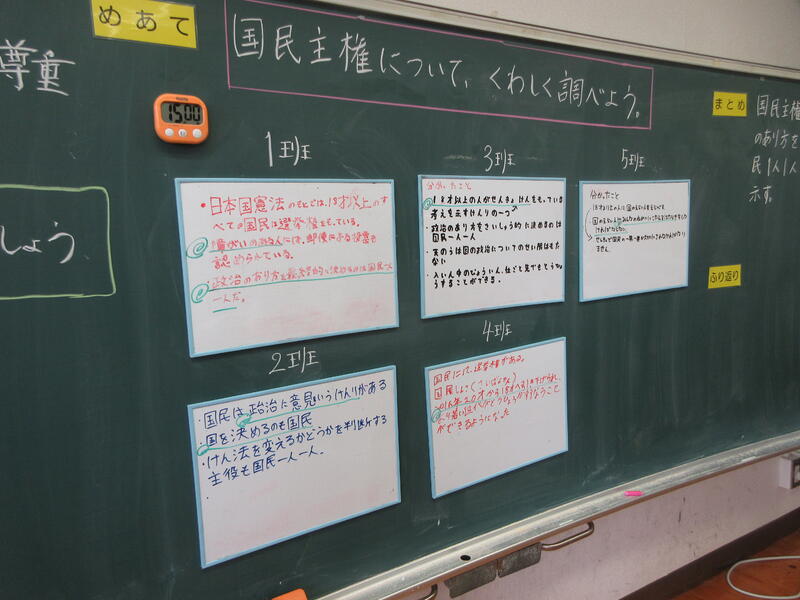 めあて
国民主権について、くわしく調べよう。
尊重
しょう
15:00
まとめ
国民主権
のあり方を
民1人1人
示す。
ふり返り
1班
・日本国憲法のもとでは、18才以上のす
べての国民は選挙権をもっている。
障がいのある人には、郵便による投票も
認められている。
政治のあり方を最終的に決めるのは国民一人
一人だ。
2班
・国民は、政治に意見いうけんりがある
・国を決めるのも国民
・けん法を変えるかどうかを判断する
主役も国民一人一人。
3班
分かったこと
18才以上の人がせんきょけんをもっている
考えを示すけんりの一つ
・政治のあり方をさいしゅう的に決めるのは
国民一人一人
・天のうは国の政治についてのせい限はもた
ない
・入いん中のびょういん、仕ごと先でもとうひょ
うすることができる。
4班
国民には、選挙権がある。
ができるようになった
5班
分かったこと